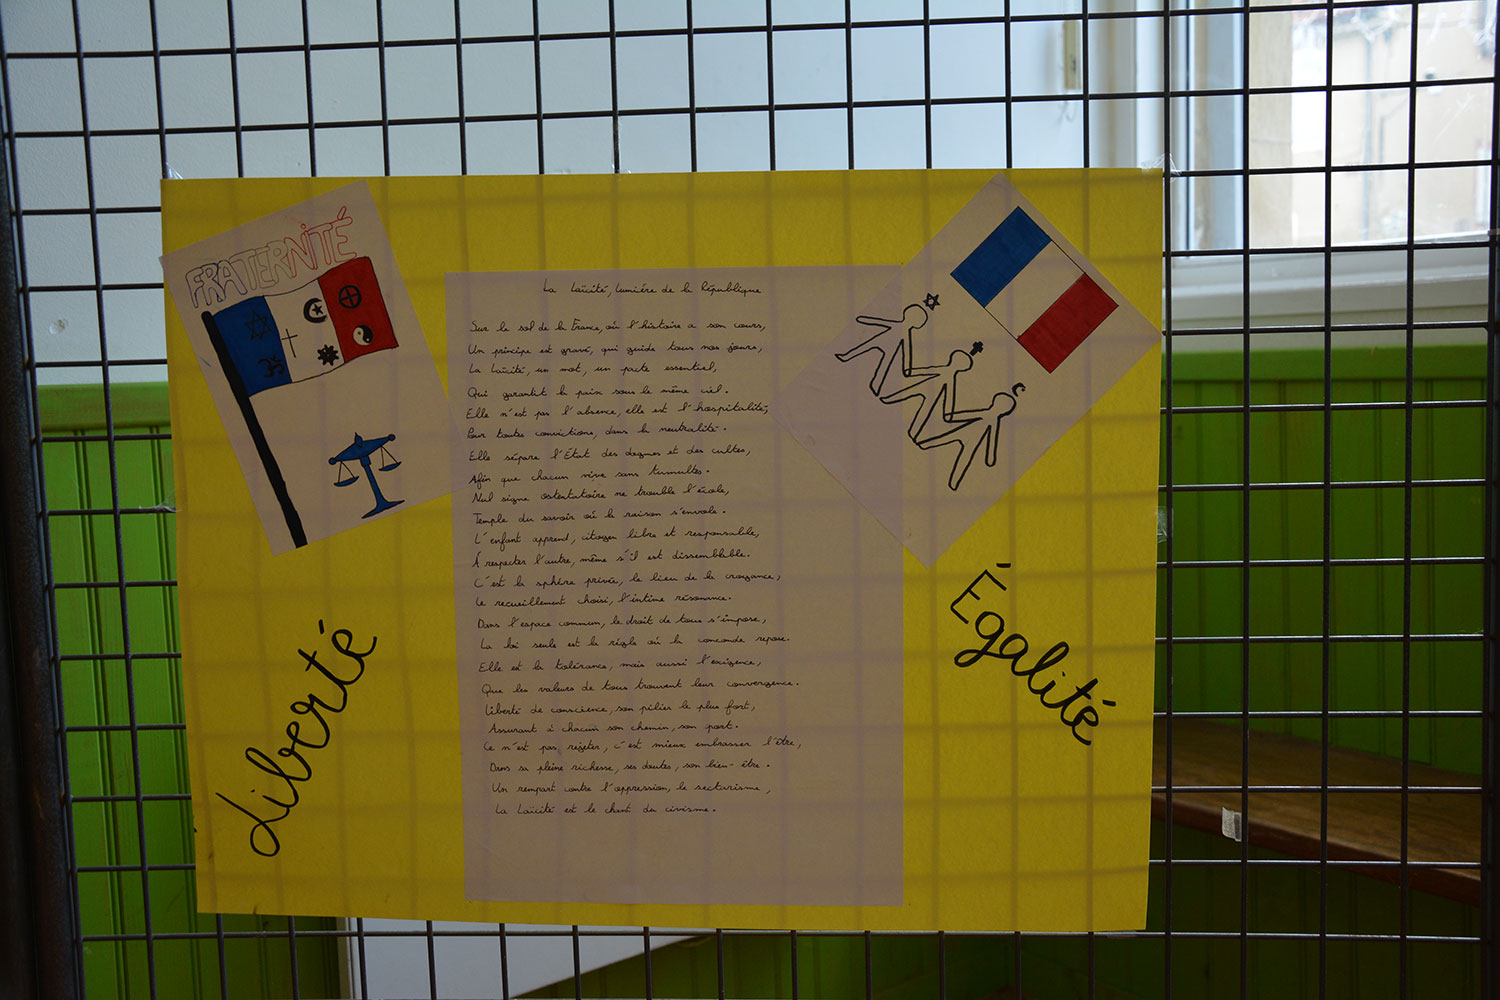 FRATERNITÉ
La Laïcité, lumière de la République
Sur le sol de la France, où l'histoire a son cours,
Un principe est gravé, qui guide tous nos jours,
La Laïcité, un mot, un pacte essentiel,
Qui garantit la paix sous le même ciel.
Elle n'est pas l'absence, elle est l'hospitalité,
Pour toutes convictions, dans la neutralité.
Elle sépare l'État des dogmes et des cultes,
Afin que chacun vive sans tumultes.
Nul signe ostentatoire ne trouble l'école,
Temple du savoir où la raison s'envole.
L'enfant apprend, citoyen libre et responsable,
À respecter l'autre, même s'il est dissemblable.
C'est la sphère privée, le lieu de la croyance,
Le recueillement choisi, l'intime résonance.
Dans l'espace commun, le droit de tous s'impose,
La loi seule est la règle où la concorde repose.
Elle est la tolérance, mais aussi l'exigence,
Que les valeurs de tous trouvent leur convergence.
Liberté de conscience, son pilier le plus fort,
Assurant à chacun son chemin, son port.
Ce n'est pas rejeter, c'est mieux embrasser l'être,
Dans sa pleine richesse, ses doutes, son bien-être.
Un rempart contre l'oppression, le sectarisme,
La Laïcité est le chant du civisme.
Liberté
Égalité